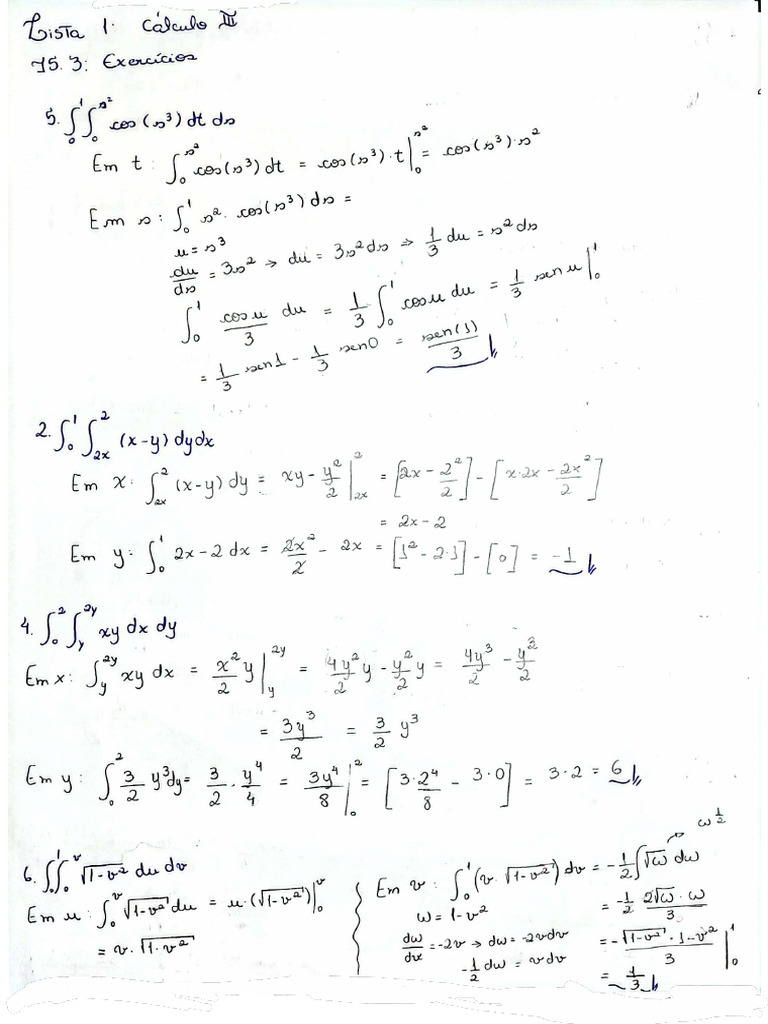 Lista 1: Cálculo III
15.3: Exercícios
5. ∫₀¹∫₀^{s²} cos(s³) dt ds
Em t: ∫₀^{s²} cos(s³) dt = cos(s³)·t |₀^{s²} = cos(s³)·s²
Em s: ∫₀¹ s²·cos(s³) ds =
u = s³
du/ds = 3s² → du = 3s² ds ⇒ 1/3 du = s² ds
∫₀¹ cos u/3 du = 1/3 ∫₀¹ cos u du = 1/3 sen u |₀¹
= 1/3 sen 1 - 1/3 sen 0 = sen(1)/3
2. ∫₀¹∫_{2x}^2 (x-y) dy dx
Em x: ∫_{2x}^2 (x-y) dy = xy - y²/2 |_{2x}^2 = [2x - 2²/2] - [x·2x - 2x²/2]
= 2x - 2
Em y: ∫₀¹ 2x - 2 dx = 2x²/2 - 2x = [1² - 2·1] - [0] = -1
4. ∫₀²∫_y^{2y} xy dx dy
Em x: ∫_y^{2y} xy dx = x²/2 y |_y^{2y} = 4y²/2 y - y²/2 y = 4y³/2 - y³/2
= 3y³/2 = 3/2 y³
Em y: ∫₀² 3/2 y³ dy = 3/2 · y⁴/4 = 3y⁴/8 |₀² = [3·2⁴/8 - 3·0] = 3·2 = 6
6. ∫₀¹∫₀^v √(1-v²) du dv
Em u: ∫₀^v √(1-v²) du = u·(√(1-v²)) |₀^v
= v·√(1-v²)
Em v: ∫₀¹ (v·√(1-v²)) dv = -1/2 ∫√w dw
w^{1/2}
w = 1-v²
= -1/2 2√w·w/3
dw/dx = -2v → dw = -2v dv
= -√(1-v²)·1-v²/3 |₀¹
-1/2 dw = v dv
= 1/3